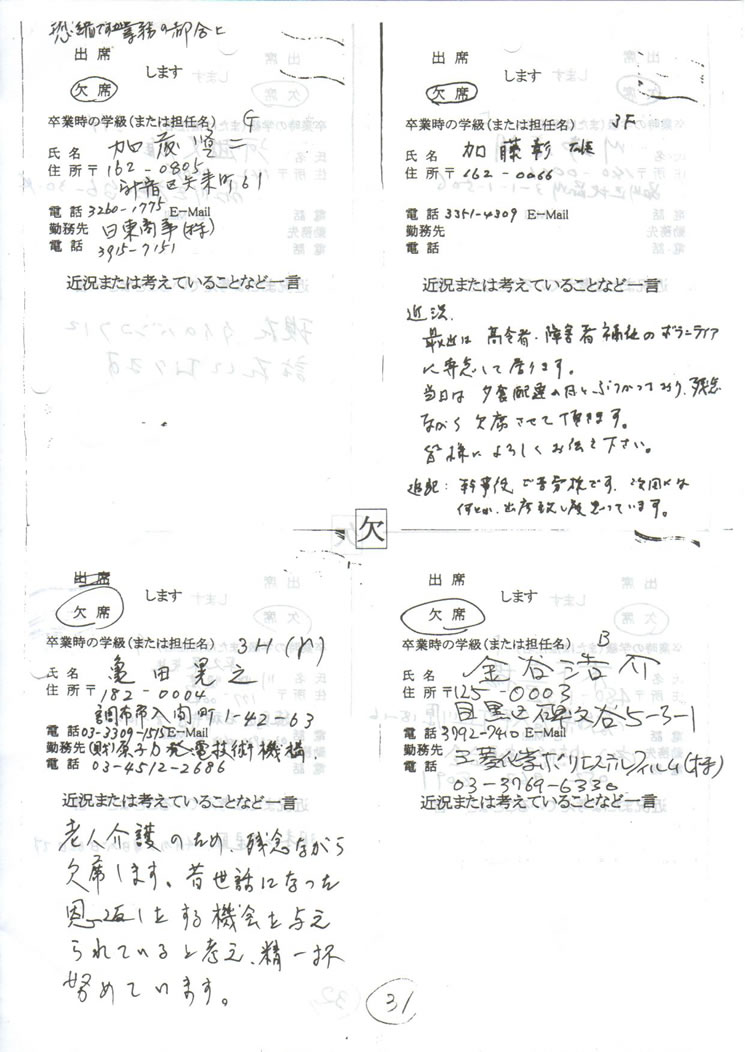 恐縮ですが業務の都合上
出 席
欠 席
します
卒業時の学級(または担任名) G
氏 名 加茂 二
住 所 〒 162-0805
新宿区矢来町61
電 話 3260-1775 E-Mail
勤務先 日東商事(株)
電 話 3915-7151
近況または考えていることなど一言
出 席
欠 席
します
卒業時の学級(または担任名) 3F
氏 名 加藤彰雄
住 所 〒 162-0066
電 話 3351-4309 E-Mail
勤務先
電 話
近況または考えていることなど一言
近況.
最近は 高令者・障害者福祉のボランティア
に専念して居ります。
当日は 夕食配達の日とぶつかっており、残念
ながら欠席させて頂きます。
皆様によろしくお伝え下さい。
追記: 幹事役ご苦労様です. 次回には
何とか、出席致し度思っています。
欠
出 席
欠 席
します
卒業時の学級(または担任名) 3H (r)
氏 名 亀田晃之
住 所 〒 182-0004
調布市入間町1-42-63
電 話 03-3309-1515 E-Mail
勤務先 (財)原子力発電技術機構.
電 話 03-4512-2686
近況または考えていることなど一言
老人介護のため、残念ながら
欠席します。昔世話になった
恩返しをする機会を与え
られていると考え、精一杯
努めています。
出 席
欠 席
します
卒業時の学級(または担任名) B
氏 名 金谷浩介
住 所 〒125-0003
目黒区碑文谷5-3-1
電 話 3992-7410 E-Mail
勤務先 三菱化学ポリエステルフィルム(株)
電 話 03-3769-6330
近況または考えていることなど一言
31